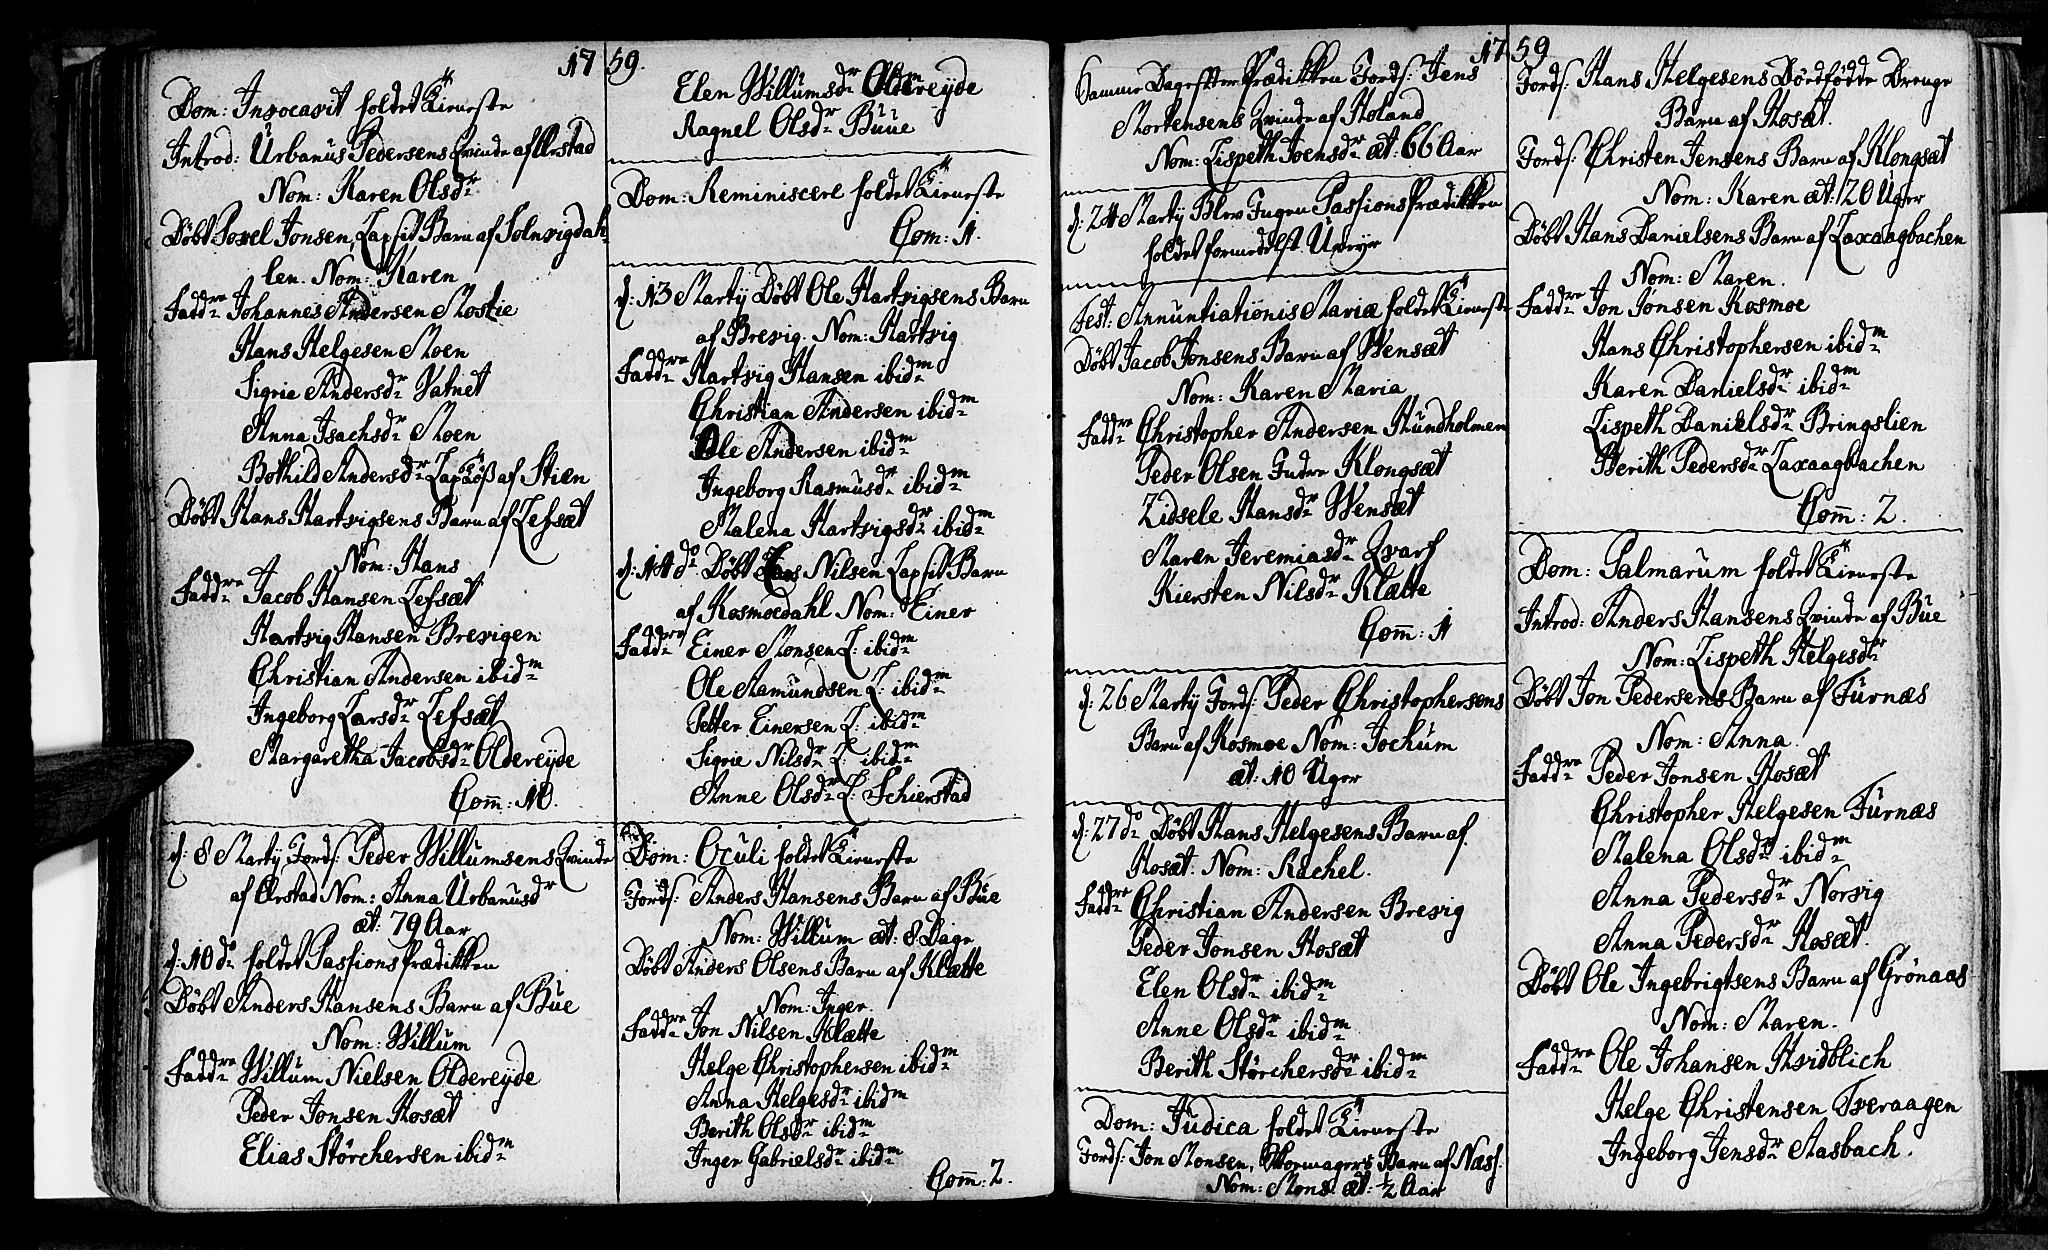 17 59.
Dom: Invocavit holdet Tieneste
Introd: Urbanus Pedersens Qvinde af Ørstad
Nom: Karen Olsdr
Døbt Povel Jonsen, Lapfit Barn af Solnvigdah-
len. Nom: Karen
Faddre Johannes Andersen Mostie
Hans Helgesen Moen
Sigrie Andersdr Vatnet
Anna Isachsdr Moen
Bothild Andersdr af Stien
Døbt Hans Hartvigsens Barn af Lefsæt
Nom: Hans
Faddre Jacob Hansen Lefsæt
Hartvig Hansen Brevigen
Christian Andersen ibidm
Ingeborg Larsdr Lefsæt
Margaretha Jacobsdr Oldereyde
Com: 10.
d: 8 Marty Fords: Peder Willumsens Qvinde
af Ørstad Nom: Anna Urbanusdr
æt: 79 Aar
d: 10 do holdet Passions Prædikken
Døbt Anders Hansens Barn af Bue
Nom: Willum
Faddre Willum Nielsen Oldereyde
Peder Jonsen Hosæt
Elias Størchersen ibidm
Elen Willumsdr Oldereyde
Ragnel Olsdr Bue
Dom: Reminiscere holdet Tieneste
Com: 1.
d: 13 Marty Døbt Ole Hartvigsens Barn
af Brevig. Nom: Hartvig
Faddre Hartvig Hansen ibidm
Christian Andersen ibidm
Ole Andersen ibidm
Ingeborg Rasmusdr ibidm
Malena Hartvigsdr ibidm
d: 14 do Døbt Nilsen Lapfit Barn
af Kosmoedahl Nom: Einer
Faddre Einer Monsen L: ibidm
Ole Aamundsen L: ibidm
Petter Einersen L: ibidm
Sigrie Nilsdr L: ibidm
Anne Olsdr L: Schierstad
Dom: Oculi holdet Tieneste
Fords: Anders Hansens Barn af Bue
Nom: Willum æt: 8 Dage
Døbt Anders Olsens Barn af Klætte
Nom: Inger
Faddre Jon Nilsen Klætte
Helge Christophersen ibidm
Anna Helgesdr ibidm
Berith Olsdr ibidm
Inger Gabrielsdr ibidm
Com: 2.
17 59
Samme Dag efter Prædikken Fords: Jens
Mortensens Qvinde af Høland
Nom: Lispeth Joensdr æt: 66 Aar
d: 24 Marty Blev Ingen Passions Prædikken
holdet formedelst Uveyr
Fest: Annuntiationis Mariæ holdet Tieneste
Døbt Jacob Jonsens Barn af Wensæt
Nom: Karen Maria
Faddre Christopher Andersen Hundholmen
Peder Olsen Indre Klongsæt
Zidsele Hansdr Wensæt
Maren Jeremiasdr Qvarf
Kiersten Nilsdr Klætte
Com: 1
d: 26 Marty Fords: Peder Christophersens
Barn af Kosmoe Nom: Jochum
æt: 10 Uger
d: 27 do Døbt Hans Helgesens Barn af
Hosæt. Nom: Rachel.
Faddre Christian Andersen Brevig
Peder Jonsen Hosæt
Elen Olsdr ibidm
Anne Olsdr ibidm
Berith Størchersdr ibidm
Dom: Judica holdet Tieneste
Fords: Jon Monsen, Barn af Næss.
Nom: Mons æt: 1/2 Aar
Fords: Hans Helgesens Dødfødde Drenge
Barn af Hosæt.
Fords: Christen Jensens Barn af Klongsæt
Nom: Karen æt: 20 Uger
Døbt Hans Danielsens Barn af Laxaagbachen
Nom: Maren.
Faddre Jon Jonsen Kosmoe
Hans Christophersen ibidm
Karen Danielsdr ibidm
Lispeth Danielsdr Bringslien
Berith Pedersdr Laxaagbachen
Com: 2.
Dom: Palmarum holdet Tieneste
Introd: Anders Hansens Qvinde af Bue
Nom: Lispeth Helgesdr
Døbt Jon Pedersens Barn af Furnæs
Nom: Anna
Faddre Peder Jonsen Hosæt
Christopher Helgesen Furnæs
Malena Olsdr ibidm
Anna Pedersdr Norvig
Anna Pedersdr Hosæt.
Døbt Ole Ingebrigtsens Barn af Grønaas
Nom: Maren.
Faddre Ole Johansen Hvidblich
Helge Christensen Tveraagen
Ingeborg Jensdr Aasbach.